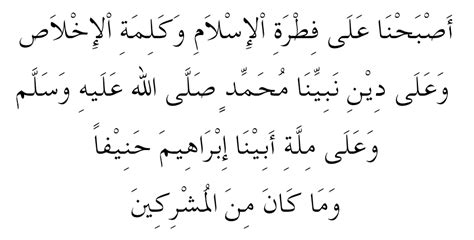 أَصْبَحْنَا عَلَى فِطْرَةِ ٱلْإِسْلَامِ وَكَلِمَةِ ٱلْإِخْلَاصِ
وَعَلَى دِيْنِ نَبِيِّنَا مُحَمِّدٍ صَلَّى الله عَلَيهِ وَسَلَّم
وَعَلَى مِلَّةِ أَبِيْنَا إِبْرَاهِيمَ حَنِيْفاً
وَمَا كَانَ مِنَ المُشْرِكِينَ